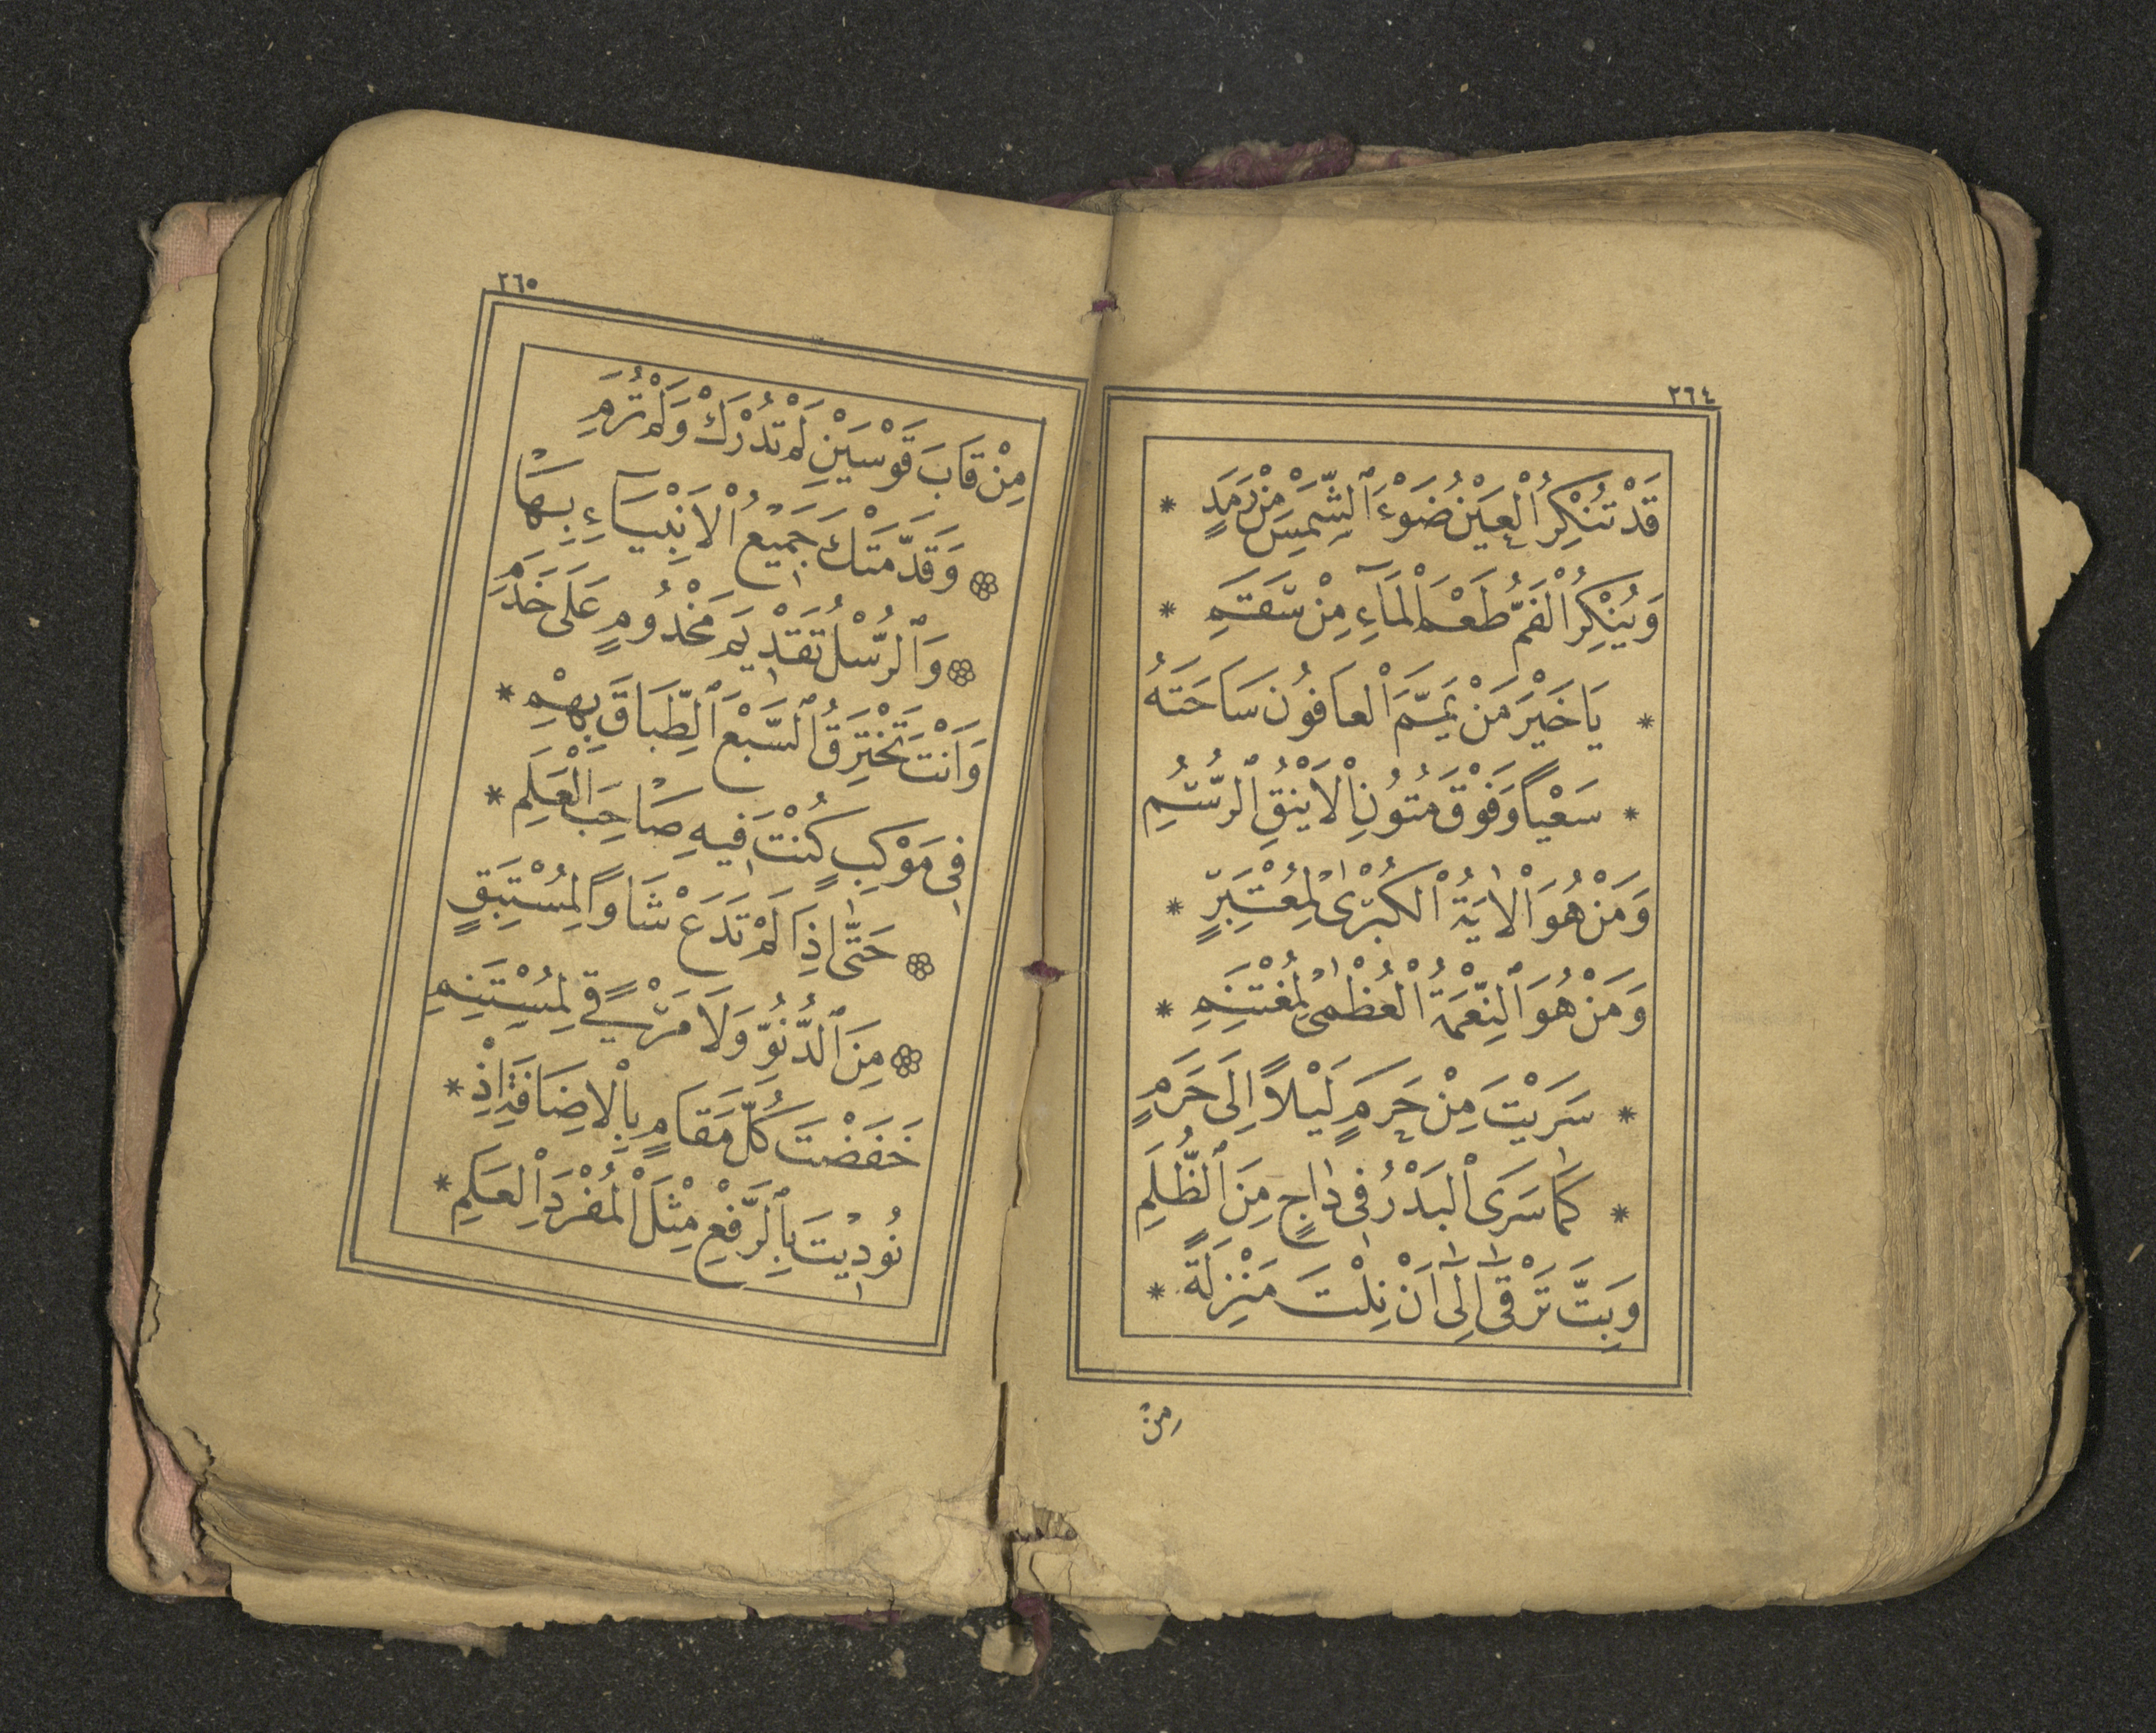 ٢٦٤
قَدْ تُنْكِرُ الْعَيْنُ ضَوْءَ الشَّمْسِ مِنْ رَمَدٍ *
وَيُنْكِرُ الْفَمُّ طَعْمَ الْمَاۤءِ مِنْ سَقَمِ *
* يَا خَيْرَ مَنْ يَمَّمَ الْعَافُونَ سَاحَتَهُ
* سَعْياً وَفَوْقَ مُتُونِ الْاَيْنُقِ الرُّسُمِ
وَمَنْ هُوَ الْاٰيَةُ الْكُبْرٰى لِمُعْتَبِرٍ *
وَمَنْ هُوَ النِّعْمَةُ الْعُظْمٰى لِمُغْتَنِمِ *
* سَرَيْتَ مِنْ حَرَمٍ لَيْلاً اِلَى حَرَمٍ
* كَمَا سَرَى الْبَدْرُ فِى دَاجٍ مِنَ الظُّلَمِ
وَبِتَّ تَرْقٰى اِلٰى اَنْ نِلْتَ مَنْزِلَةً *
مِنْ
٢٦٥
مِنْ قَابَ قَوْسَيْنِ لَمْ تُدْرَكْ وَلَمْ تُرَمِ
وَقَدَّمَتْكَ جَمِيعُ الْاَنْبِيَاۤءِ بِهَا
وَالرُّسْلُ تَقْدِيمَ مَخْدُومٍ عَلَى خَدَمِ
وَاَنْتَ تَخْتَرِقُ السَّبْعَ الطِّبَاقَ بِهِمْ *
فِى مَوْكِبٍ كُنْتَ فِيهِ صَاحِبَ الْعَلَمِ *
حَتَّى اِذَا لَمْ تَدَعْ شَاْواً لِمُسْتَبِقٍ
مِنَ الدُّنُوِّ وَلَا مَرْقىً لِمُسْتَنِمِ
خَفَضْتَ كُلَّ مَقَامٍ بِالْاِضَافَةِ اِذْ *
نُودِيتَ بِالرَّفْعِ مِثْلَ الْمُفْرَدِ الْعَلَمِ *